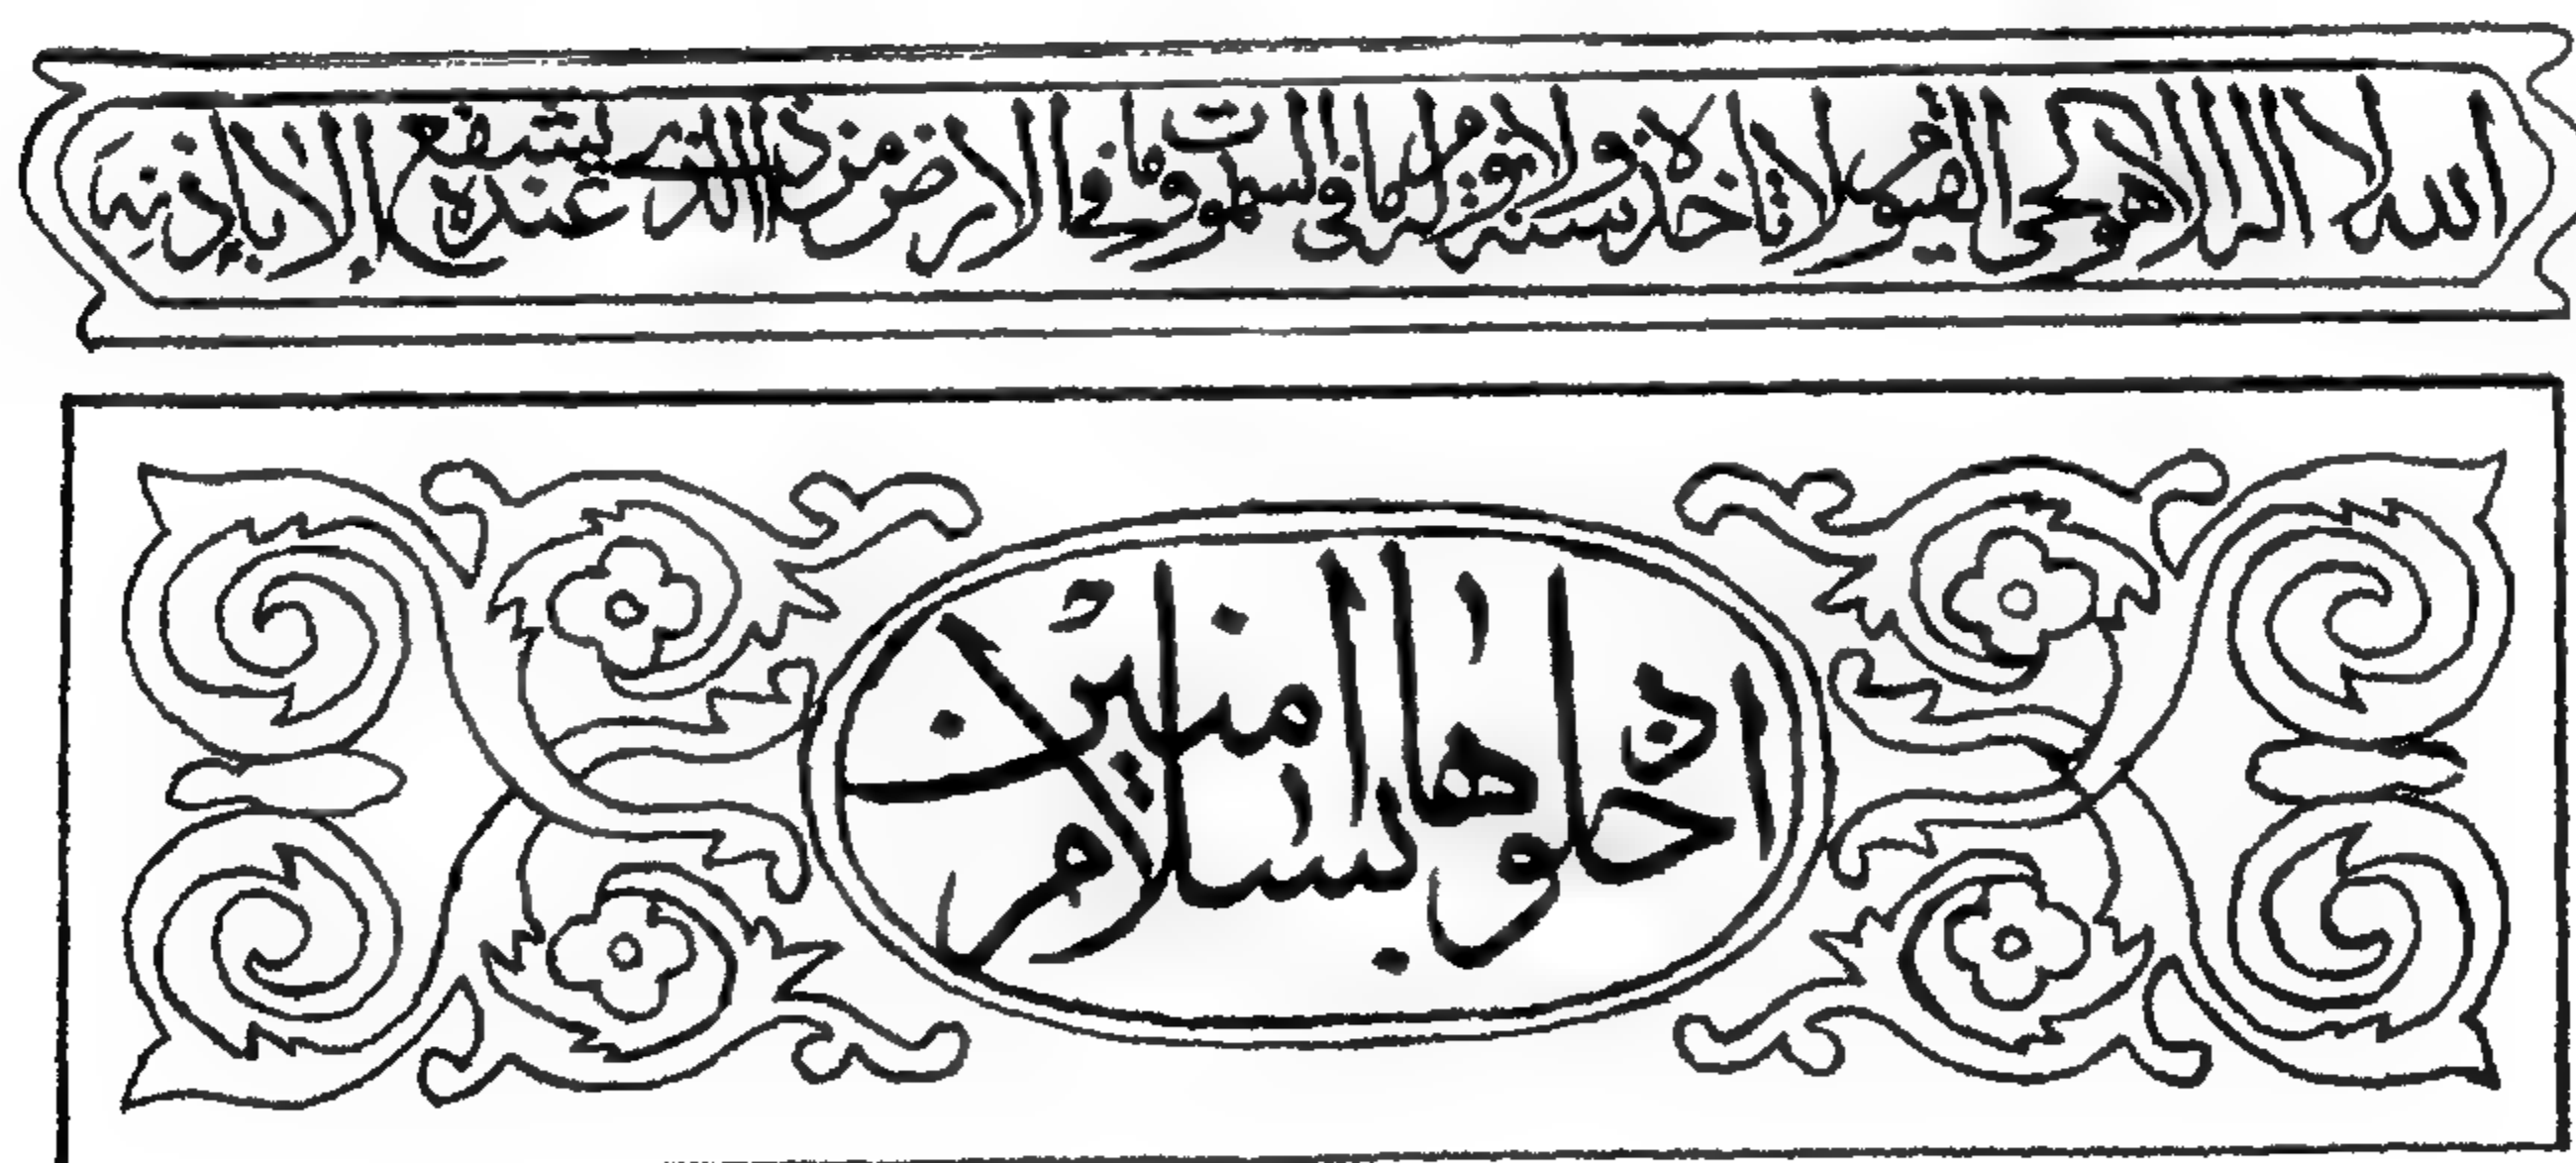 الله لا اله الا هو الحي القيوم لا تاخذه سنة ولا نوم له ما في السموت وما في الارض من ذا الذي يشفع عنده إلا بإذنه
ادخلوها بسلام امنين